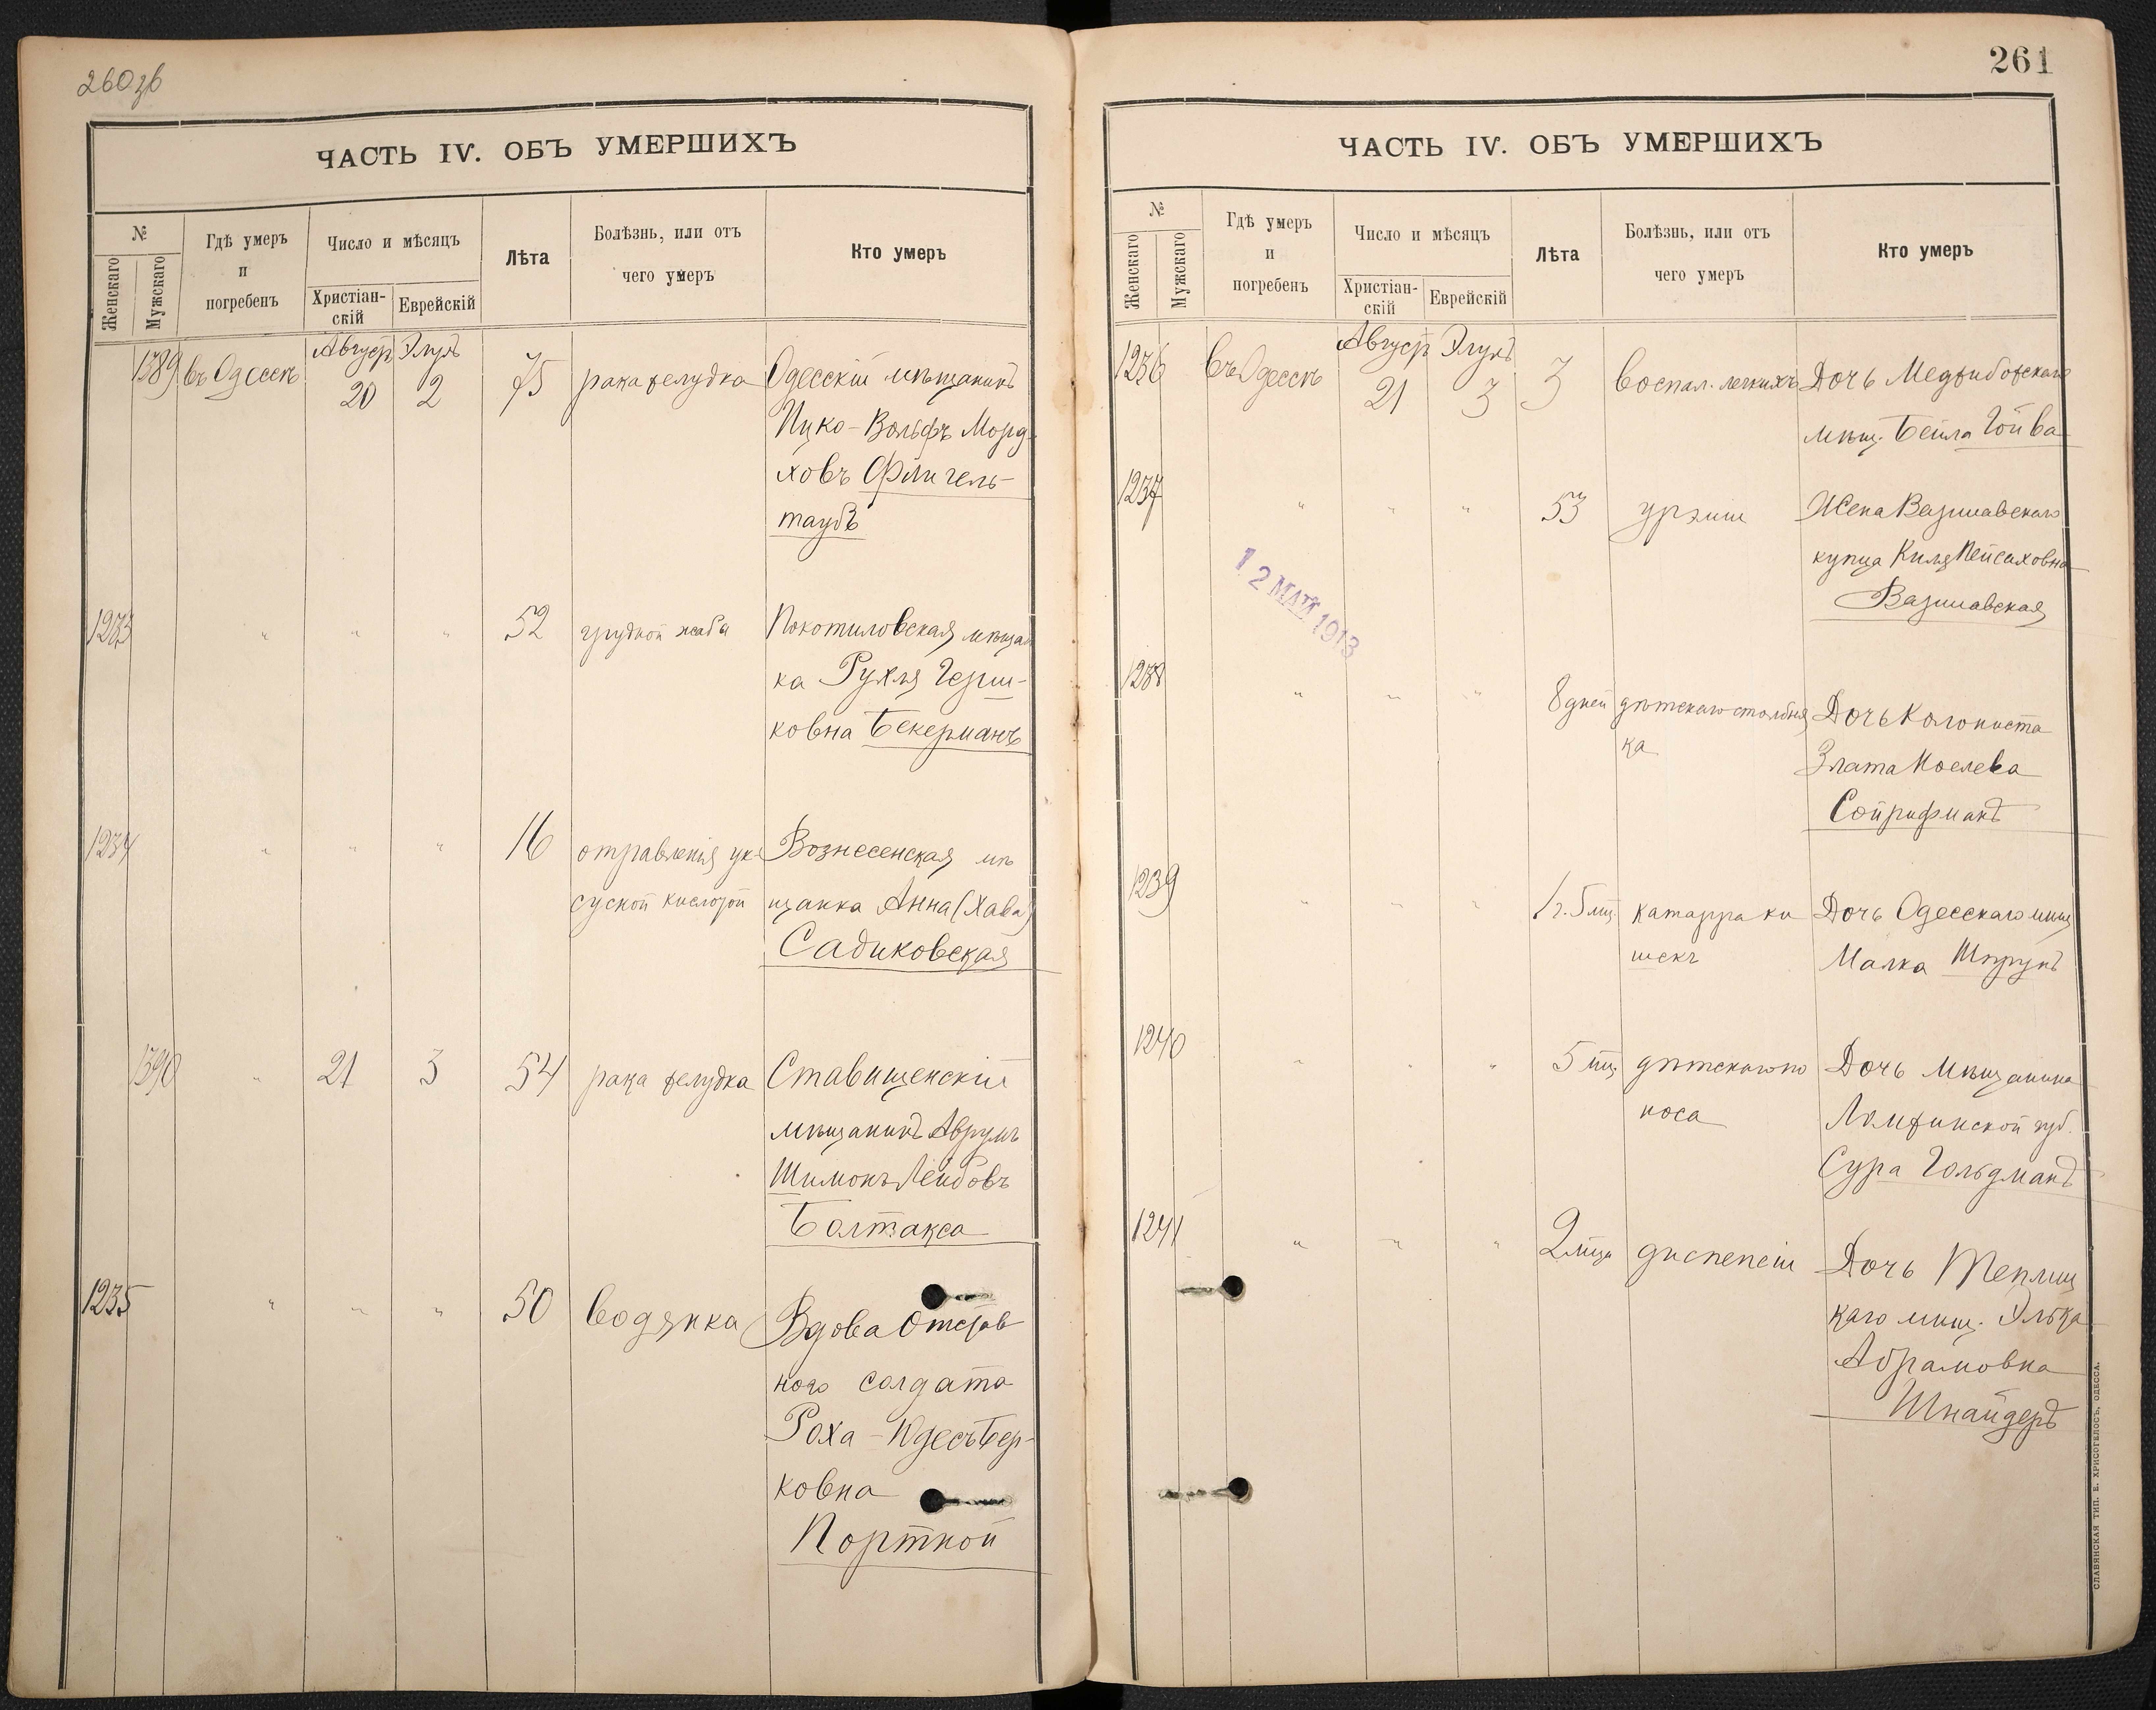 260 зв
ЧАСТЬ IV. ОБЪ УМЕРШИХЪ
№
Женскаго
Мужскаго
Гдѣ умеръ
и
погребенъ
Число и мѣсяцъ
Христіан-
скій
Еврейскій
Лѣта
Болѣзнь, или отъ
чего умеръ
Кто умеръ
Август Элулъ
1389 въ Одессѣ 20 2 75 рака желудка Одесскій мѣщанинъ
Ицко-Вольфъ Морд-
ховъ Флигель-
таубъ
1233 " " " 52 грудной жаба Покотиловская мѣщан
ка Рухля Герш-
ковна Бекерманъ
1234 " " " 16 отравленія ук- Вознесенская мѣ
сусной кислотой щанка Анна (Хава)
Садиковская
1390 " 21 3 54 рака желудка Ставищенскій
мѣщанинъ Аврумъ
Шимонъ Лейбовъ
Болтакса
1235 " " " 50 водянка Вдова Отстав
ного солдата
Роха-Юдесъ Бер-
ковна
Портной
261
ЧАСТЬ IV. ОБЪ УМЕРШИХЪ
№
Женскаго
Мужскаго
Гдѣ умеръ
и
погребенъ
Число и мѣсяцъ
Христіан-
скій
Еврейскій
Лѣта
Болѣзнь, или отъ
чего умеръ
Кто умеръ
Август Элулъ
1236 въ Одессѣ 21 3 3 воспал. легкихъ Дочь Меджибожскаго
мѣщ. Бейла Гойва
1237 " " " 53 урэміи Жена Варшавскаго
купца Киля Пейсаховна
Варшавская
12 МАЯ 1913
1238 " " " 8 дней дѣтскаго столбня Дочь Колониста
ка Злата Иоелева
Сойрифманъ
1239 " " " 1г. 5 мц. катарра ки Дочь Одесскаго мѣщ
шекъ Малка Шпрунъ
1240 " " " 5 мц. дѣтскаго по Дочь мѣщанина
носа Ломжинской губ.
Сура Гольдманъ
1241 " " " 2 мца диспепсіи Дочь Теплиц
каго мѣщ. Элька
Абрамовна
Шнайдеръ
СЛАВЯНСКАЯ ТИП. Е. ХРИСОГЕЛОСЪ, ОДЕССА.